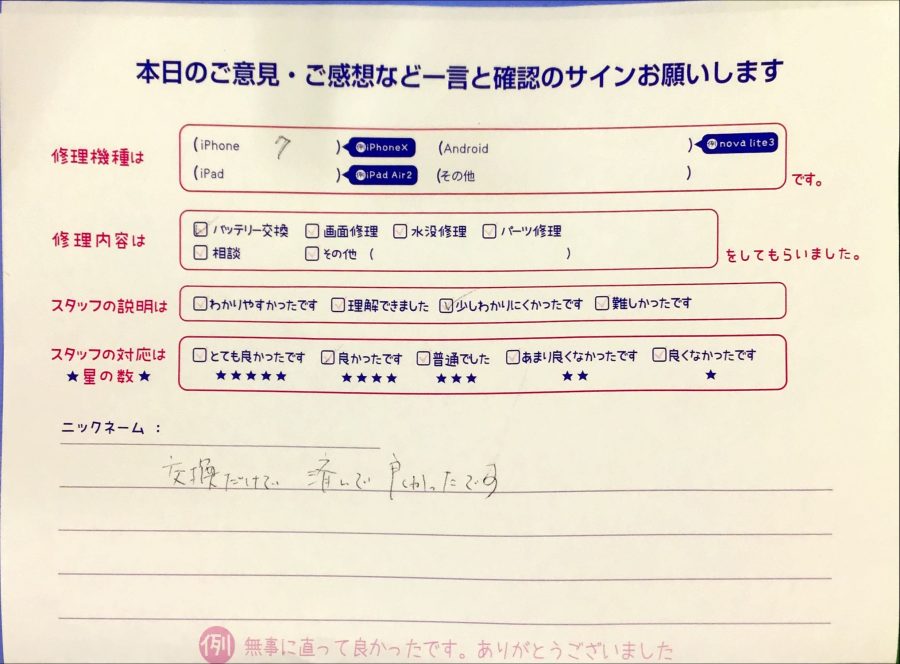 本日のご意見・ご感想など一言と確認のサインお願いします
修理機種は
(iPhone 7 ) 例iPhoneX (Android ) 例nova lite3
(iPad ) 例iPad Air2 (その他 ) です。
修理内容は
バッテリー交換 画面修理 水没修理 パーツ修理
相談 その他 ( ) をしてもらいました。
スタッフの説明は わかりやすかったです 理解できました 少しわかりにくかったです 難しかったです
スタッフの対応は とても良かったです 良かったです 普通でした あまり良くなかったです 良くなかったです
★星の数★ ★★★★★ ★★★★ ★★★ ★★ ★
ニックネーム：
交換だけで 済んで良かったです
例 無事に直って良かったです。ありがとうございました